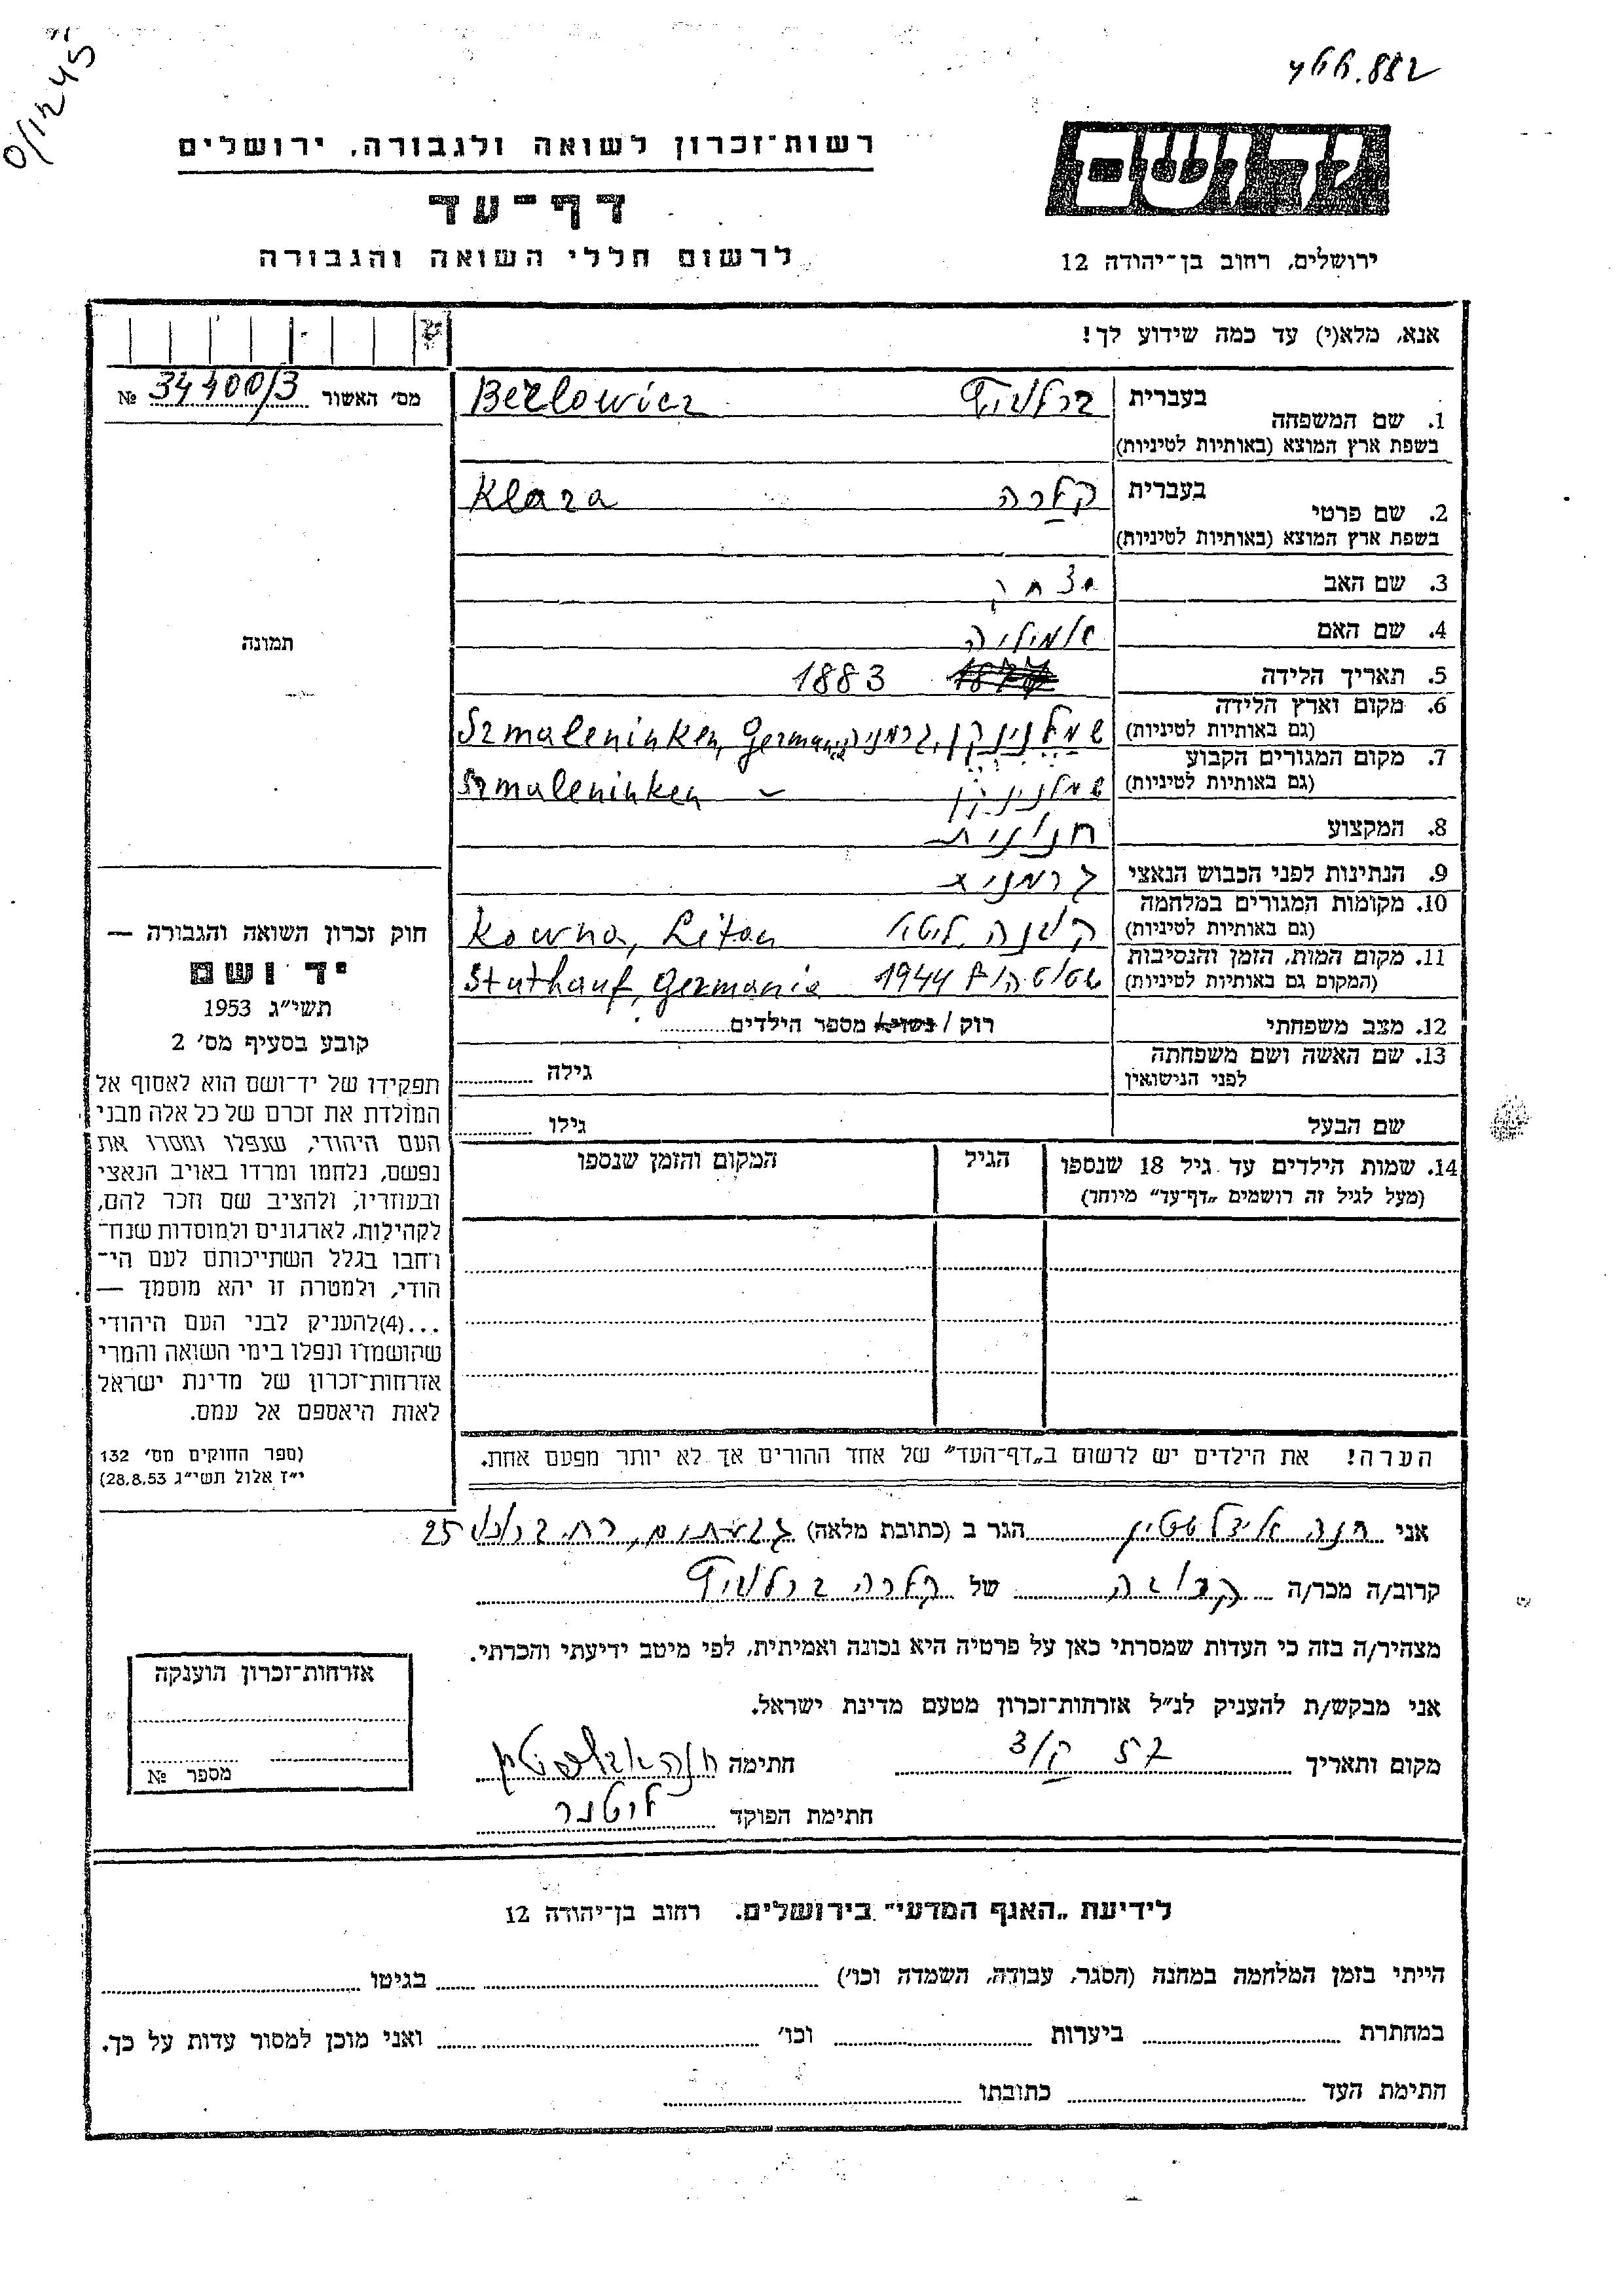 0/1245
ידושם
ירושלים, רחוב בן־יהודה 12
רשות־זכרון לשואה ולגבורה, ירושלים
דף־עד
לרשום חללי השואה והגבורה
אנא, מלא(י) עד כמה שידוע לך!
מס׳ האשור 34400/3 №
תמונה
חוק זכרון השואה והגבורה —
יד ושם
תשי״ג 1953
קובע בסעיף מס׳ 2
תפקידו של יד־ושם הוא לאסוף אל
המולדת את זכרם של כל אלה מבני
העם היהודי, שנפלו ומסרו את
נפשם, נלחמו ומרדו באויב הנאצי
ובעוזריו, ולהציב שם וזכר להם,
לקהילות, לארגונים ולמוסדות שנח־
רחבו בגלל השתייכותם לעם הי־
הודי, ולמטרה זו יהא מוסמך —
...(4)להעניק לבני העם היהודי
שהושמדו ונפלו בימי השואה והמרי
אזרחות־זכרון של מדינת ישראל
לאות היאספם אל עמם.
(ספר החוקים מס׳ 132
י״ז אלול תשי״ג 28.8.53)
1. שם המשפחה
בעברית ברלוביץ Berlowicz
בשפת ארץ המוצא (באותיות לטיניות)
2. שם פרטי
בעברית קלרה Klara
בשפת ארץ המוצא (באותיות לטיניות)
3. שם האב יצחק
4. שם האם
5. תאריך הלידה 1883
6. מקום וארץ הלידה
(גם באותיות לטיניות) שמלנינקן, גרמניה Szmaleninken, Germany
7. מקום המגורים הקבוע
(גם באותיות לטיניות) שמלנינקן Szmaleninken
8. המקצוע חנונית
9. הנתינות לפני הכבוש הנאצי גרמניה
10. מקומות המגורים במלחמה
(גם באותיות לטיניות) קובנה, ליטא Kowno, Litau
11. מקום המות, הזמן והנסיבות
(המקום גם באותיות לטיניות) שטוטהוף 1944 Stuthauf, Germania
12. מצב משפחתי רוק / נשוי/א מספר הילדים
13. שם האשה ושם משפחתה
לפני הנישואין גילה
שם הבעל גילו
14. שמות הילדים עד גיל 18 שנספו הגיל המקום והזמן שנספו
(מעל לגיל זה רושמים „דף־עד״ מיוחד)
הערה! את הילדים יש לרשום ב„דף־העד״ של אחד ההורים אך לא יותר מפעם אחת.
אני חנה אידלשטיין הגר ב (כתובת מלאה) גבעתיים, רח׳ 25
קרוב/ה מכר/ה קרובה של קלרה ברלוביץ
מצהיר/ה בזה כי העדות שמסרתי כאן על פרטיה היא נכונה ואמיתית, לפי מיטב ידיעתי והכרתי.
אני מבקש/ת להעניק לנ״ל אזרחות־זכרון מטעם מדינת ישראל.
מקום ותאריך חתימה חנה אידלשטיין
חתימת הפוקד ליטנר
אזרחות־זכרון הוענקה
מספר №
לידיעת „האגף המדעי״ בירושלים. רחוב בן־יהודה 12
הייתי בזמן המלחמה במחנה (הסגר, עבודה, השמדה וכו׳) בגיטו
במחתרת ביערות וכו׳ ואני מוכן למסור עדות על כך.
חתימת העד כתובתו